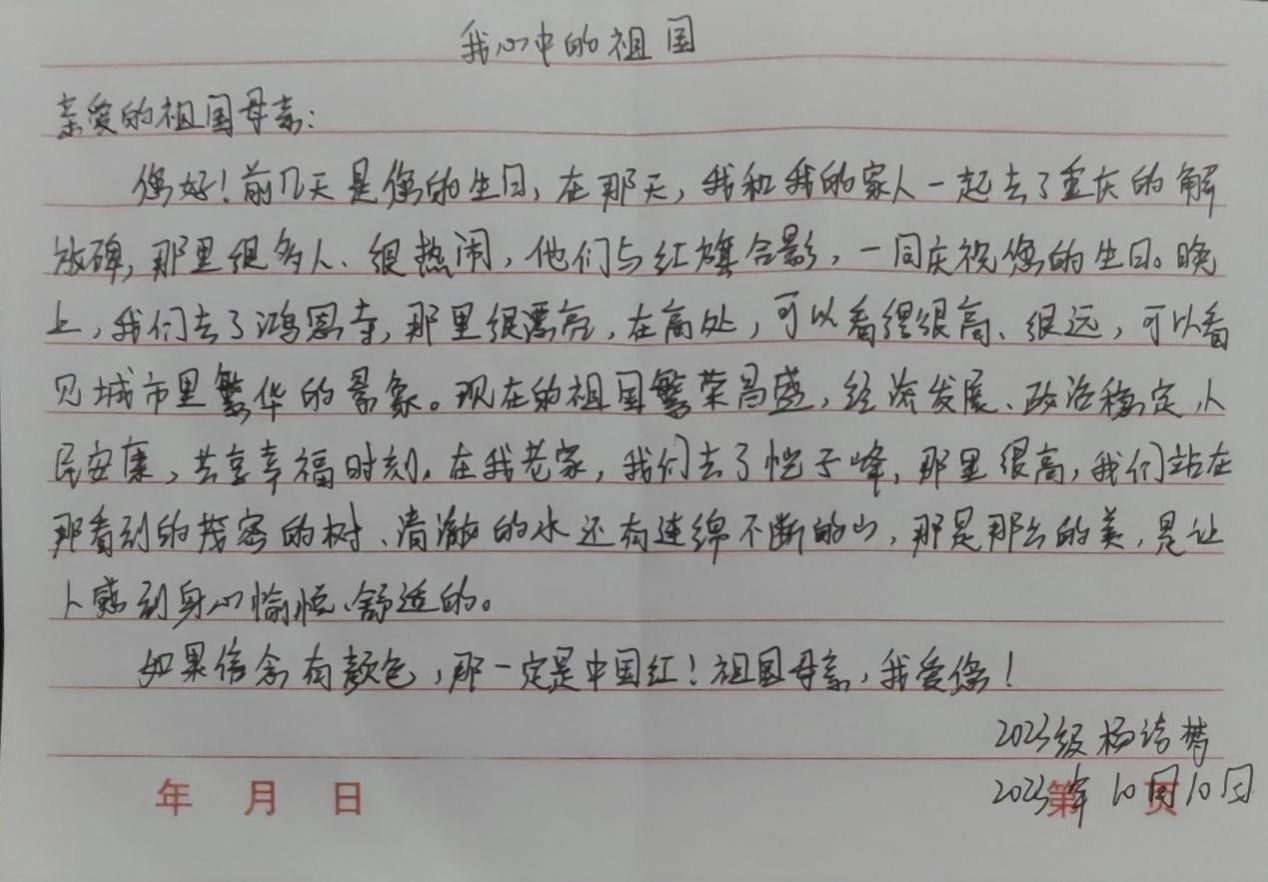 我心中的祖国
亲爱的祖国母亲:
您好!前几天是您的生日,在那天,我和我的家人一起去了重庆的解
放碑,那里很多人、很热闹,他们与红旗合影,一同庆祝您的生日。晚
上,我们去了鸿恩寺,那里很漂亮,在高处,可以看得很高、很远,可以看
见城市里繁华的景象。现在的祖国繁荣昌盛,经济发展、政治稳定,人
民安康,共享幸福时刻。在我老家,我们去了恺子峰,那里很高,我们站在
那看到的茂密的树、清澈的水还有连绵不断的山,那是那么的美,是让
人感到身心愉悦、舒适的。
如果信念有颜色,那一定是中国红!祖国母亲,我爱您!
2023级杨诗梦
年 月 日 第 页
2023年10月10日